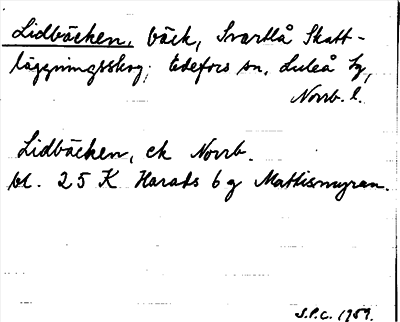 Lidbäcken, bäck, Svartlå Skatt-
läggningsskog; Edefors sn, Luleå tg,
Norrb. l.
Lidbäcken, ek Norrb.
bl. 25 K Harads 6 g Mattismyran.
S.P.C. 1959.